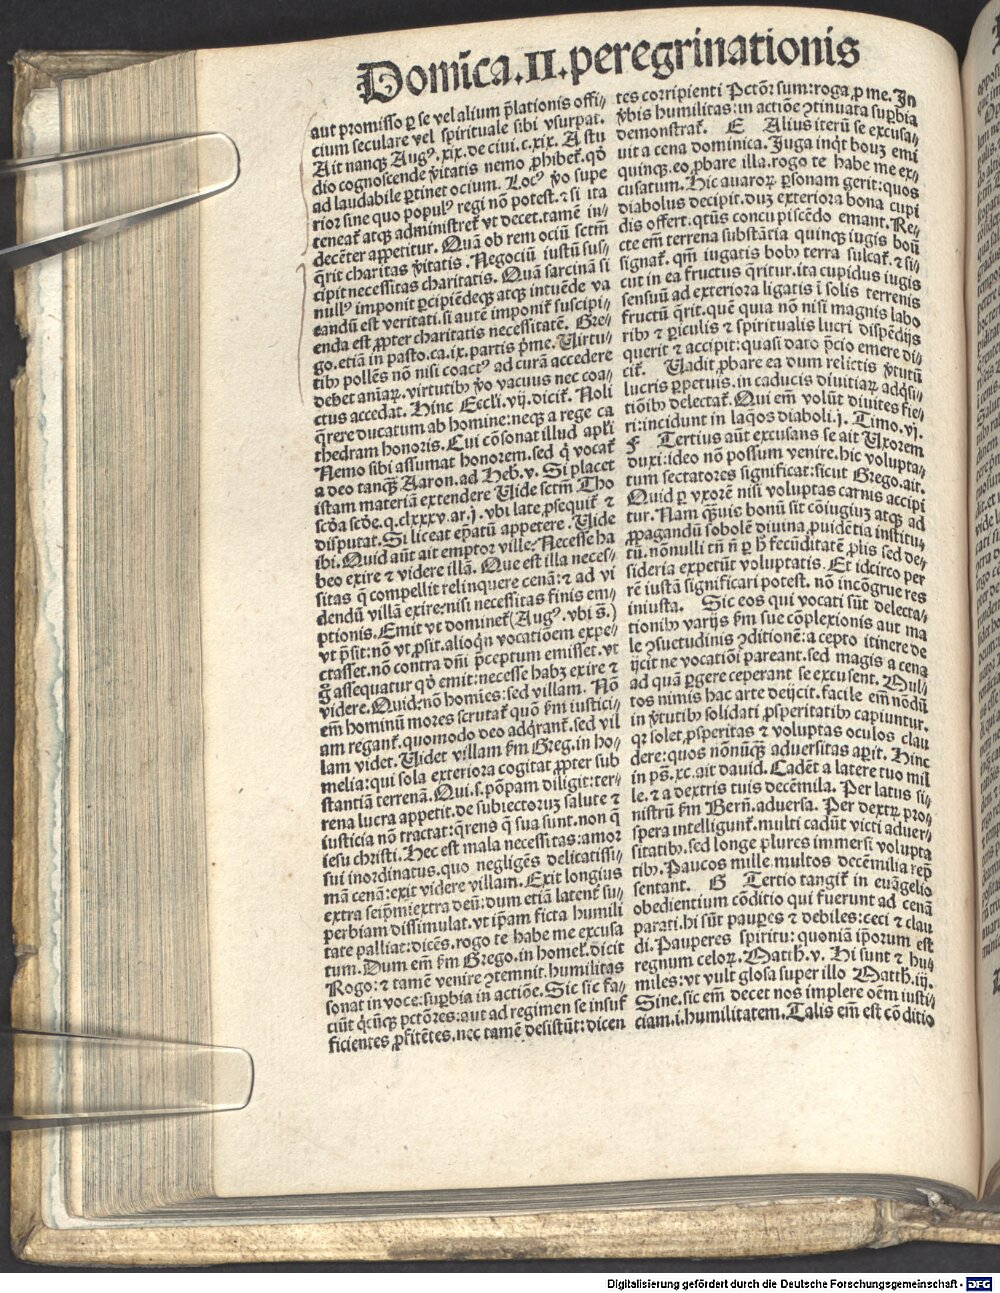 Domīca.II.peregrinationis
aut promisso ꝑ se vel alium p̄lationis offi⸗
cium seculare vel spirituale sibi vsurpat.
Ait nanqꝫ Augꝰ.xix.de ciui.c.xix. A stu
dio cognoscende v̓itatis nemo ꝓhibet̃.qḋ
ad laudabile ꝑtinet ocium. Locꝰ v̓o supe
rior sine quo populꝰ regi nō potest.⁊ si ita
teneat̃ atqꝫ administret̃ vt decet.tamē in⸗
decēter appetitur. Quā ob rem ociū sctm̄
q̄rit charitas v̓itatis. Negociū iustū sus⸗
cipit necessitas charitatis. Quā sarcinā si
nullꝰ imponit ꝑcipiēdeqꝫ atqꝫ intuēde va
candū est veritati.si autē imponit̃ suscipi⸗
enda est ꝓpter charitatis necessitatē. Gre⸗
go.etiā in pasto.ca.ix.partis p̄me. Uirtu⸗
tibꝰ pollēs nō nisi coactꝰ ad curā accedere
debet aniaꝝ.virtutibꝰ v̓o vacuus nec coa⸗
ctus accedat. Hinc Eccłi.vij.dicit̃. Noli
q̄rere ducatum ab homine:neqꝫ a rege ca
thedram honoris. Cui cōsonat illud apłi
Nemo sibi assumat honorem.sed q̇ vocat̃
a deo tanqꝫ̄ Aaron.ad Heb.v. Si placet
istam materiā extendere Uide sctm̄ Tho
scḋa scḋe.q.clxxxv.ar.j.vbi late ꝓsequit̃ ⁊
disputat. Si liceat ep̄atū appetere. Uide
ibi. Quid aūt ait emptor ville? Necesse ha
beo exire ⁊ videre illā. Que est illa neces⸗
sitas q̄ compellit relinquere cenā:⁊ ad vi
dendū villā exire:nisi necessitas finis em⸗
ptionis. Emit vt dominet̃(Augꝰ.vbi s̄.)
vt p̄sit:nō vt ꝓsit.alioqn̄ vocatiōem expe⸗
ctasset.nō contra dn̄i p̄ceptum emisset.vt
g̊ assequatur qḋ emit:necesse habꝫ exire ⁊
videre. Quid?nō homīes:sed villam. Nō
em̄ hominū mores scrutat̃ quō ẜm iustici⸗
am regant̃.quomodo deo adq̄rant̃.sed vil
lam videt. Uidet villam ẜm Greg.in ho⸗
melia:qui sola exteriora cogitat ꝓpter sub
stantiā terrenā. Qui.s.pōpam diligit:ter⸗
rena lucra appetit.de subiectoruꝫ salute ⁊
iusticia nō tractat:q̄rens q̄ sua sunt.non q̄
iesu christi. Hec est mala necessitas:amor
sui inordinatus.quo negligēs delicatissi⸗
mā cenā:exit videre villam. Exit longius
extra seip̄m:extra deū:dum etiā latent̃ su⸗
perbiam dissimulat.vt ip̄am ficta humili
tate palliat:dicēs.rogo te habe me excusa
tum. Dum em̄ ẜm Grego.in homeł.dicit
Rogo:⁊ tamē venire ꝯtemnit.humilitas
sonat in voce:suꝑbia in actiōe. Sic sic fa⸗
ciūt q̇cūqꝫ pctōres:aut ad regimen se insuf
ficientes ꝓfitētes.nec tamē desistūt:dicen
tes corripienti Pctōr sum:roga ꝓ me. In
v̓bis humilitas:in actiōe ꝯtinuata suꝑbia
demonstrat̃. E Alius iterū se excusa⸗
uit a cena dominica. Juga inqt̃ bouꝫ emi
quinqꝫ.eo ꝓbare illa.rogo te habe me ex⸗
cusatum. Hic auaroꝝ ꝑsonam gerit:quos
diabolus decipit.duꝫ exteriora bona cupi
dis offert:qtūs concupiscēdo emant. Re⸗
cte em̄ terrena substātia quinqꝫ iugis boū
signat̃. qm̄ iugatis bobꝰ terra sulcat̃.⁊ si⸗
cut in ea fructus q̄ritur.ita cupidus iugis
sensuū ad exteriora ligatis ī solis terrenis
fructū q̄rit.quē quia nō nisi magnis labo
ribꝰ ⁊ ꝑiculis ⁊ spiritualis lucri dispēdijs
querit ⁊ accipit:quasi dato p̄cio emere di⸗
cit̃. Uadit ꝓbare ea dum relictis v̓tutū
lucris ꝑpetuis.in caducis diuitiaꝝ adq̇si⸗
tiōibꝰ delectat̃. Qui em̄ volūt diuites fie⸗
ri:incidunt in laq̄os diaboli.j. Timo.vj.
F Tertius aūt excusans se ait Uxorem
duxi:ideo nō possum venire.hic volupta⸗
tum sectatores significat:sicut Grego.ait.
Quid ꝑ vxorē nisi voluptas carnis accipi
tur. Nam qꝫ̄uis bonū sit cōiugiuꝫ atqꝫ ad
ꝓpagandū sobolē diuina ꝓuidētia institu⸗
tū.nōnulli tn̄ n̄ ꝑ h̄ fecūditatē ꝓlis sed de⸗
sideria expetūt voluptatis. Et idcirco per
rē iustā significari potest. nō incōgrue res
iniusta. Sic eos qui vocati sūt delecta⸗
tionibꝰ varijs ẜm sue cōplexionis aut ma
le ꝯsuetudinis ꝯditionē:a cepto itinere de
ijcit ne vocatiōi pareant.sed magis a cena
ad quā ꝑgere ceperant se excusent. Mul⸗
tos nimis hac arte deijcit.facile em̄ nōdū
in v̓tutibꝰ solidati ꝓsperitatibꝰ capiuntur.
qꝛ solet ꝓsperitas ⁊ voluptas oculos clau
dere:quos nōnūqꝫ̄ aduersitas aꝑit. Hinc
in ps̄.xc.ait dauid. Cadēt a latere tuo mil
le.⁊ a dextris tuis decēmila. Per latus si⸗
nistrū ẜm Bern̄.aduersa. Per dextꝝ pro⸗
spera intelligunt̃.multi cadūt victi aduer⸗
sitatibꝰ.sed longe plures immersi volupta
tibꝰ. Paucos mille.multos decēmilia rep̄
sentant. G Tertio tangit̃ in euāgelio
obedientium cōditio qui fuerunt ad cenā
parati.hi sūt pauꝑes ⁊ debiles:ceci ⁊ clau
di. Pauperes spiritu: quoniā ip̄orum est
regnum celoꝝ. Matth.v. Hi sunt ⁊ hu⸗
miles:vt vult glosa super illo Matth.iij.
Sine.sic em̄ decet nos implere oēm iusti⸗
ciam.i.humilitatem. Talis em̄ est cōditio
Digitalisierung gefördert durch die Deutsche Forschungsgemeinschaft - DFG